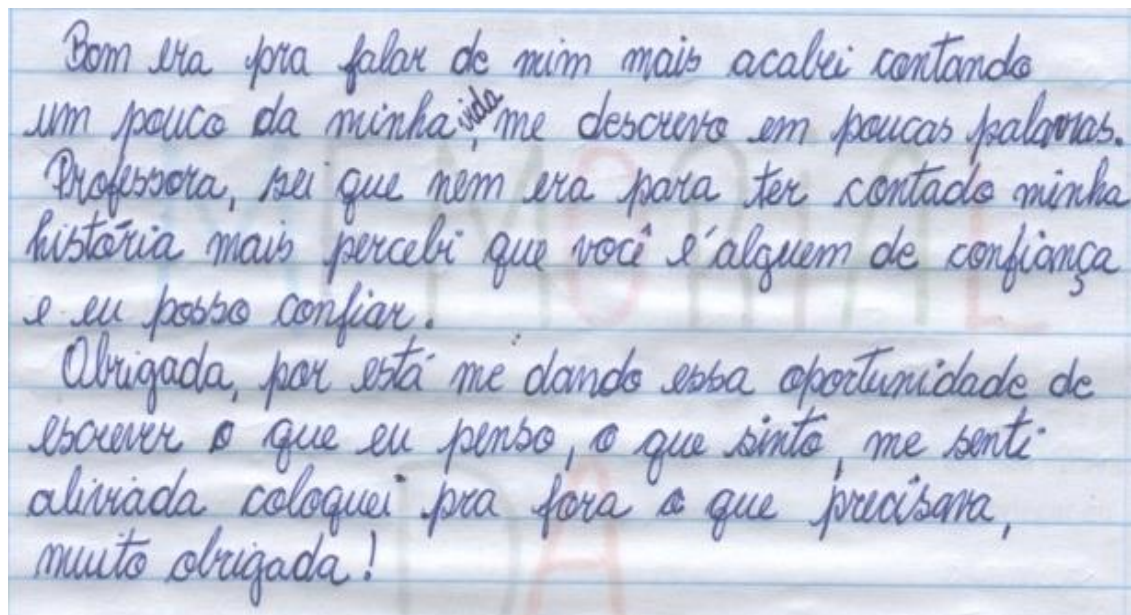 Bom era pra falar de mim mais acabei contando
um pouco da minha vida, me descrevo em poucas palavras.
Professora, sei que nem era para ter contado minha
história mais percebi que você é alguem de confiança
e eu posso confiar.
Obrigada, por está me dando essa oportunidade de
escrever o que eu penso, o que sinto, me senti
aliviada coloquei pra fora o que precisava,
muito obrigada!
MEMORIAL
DA